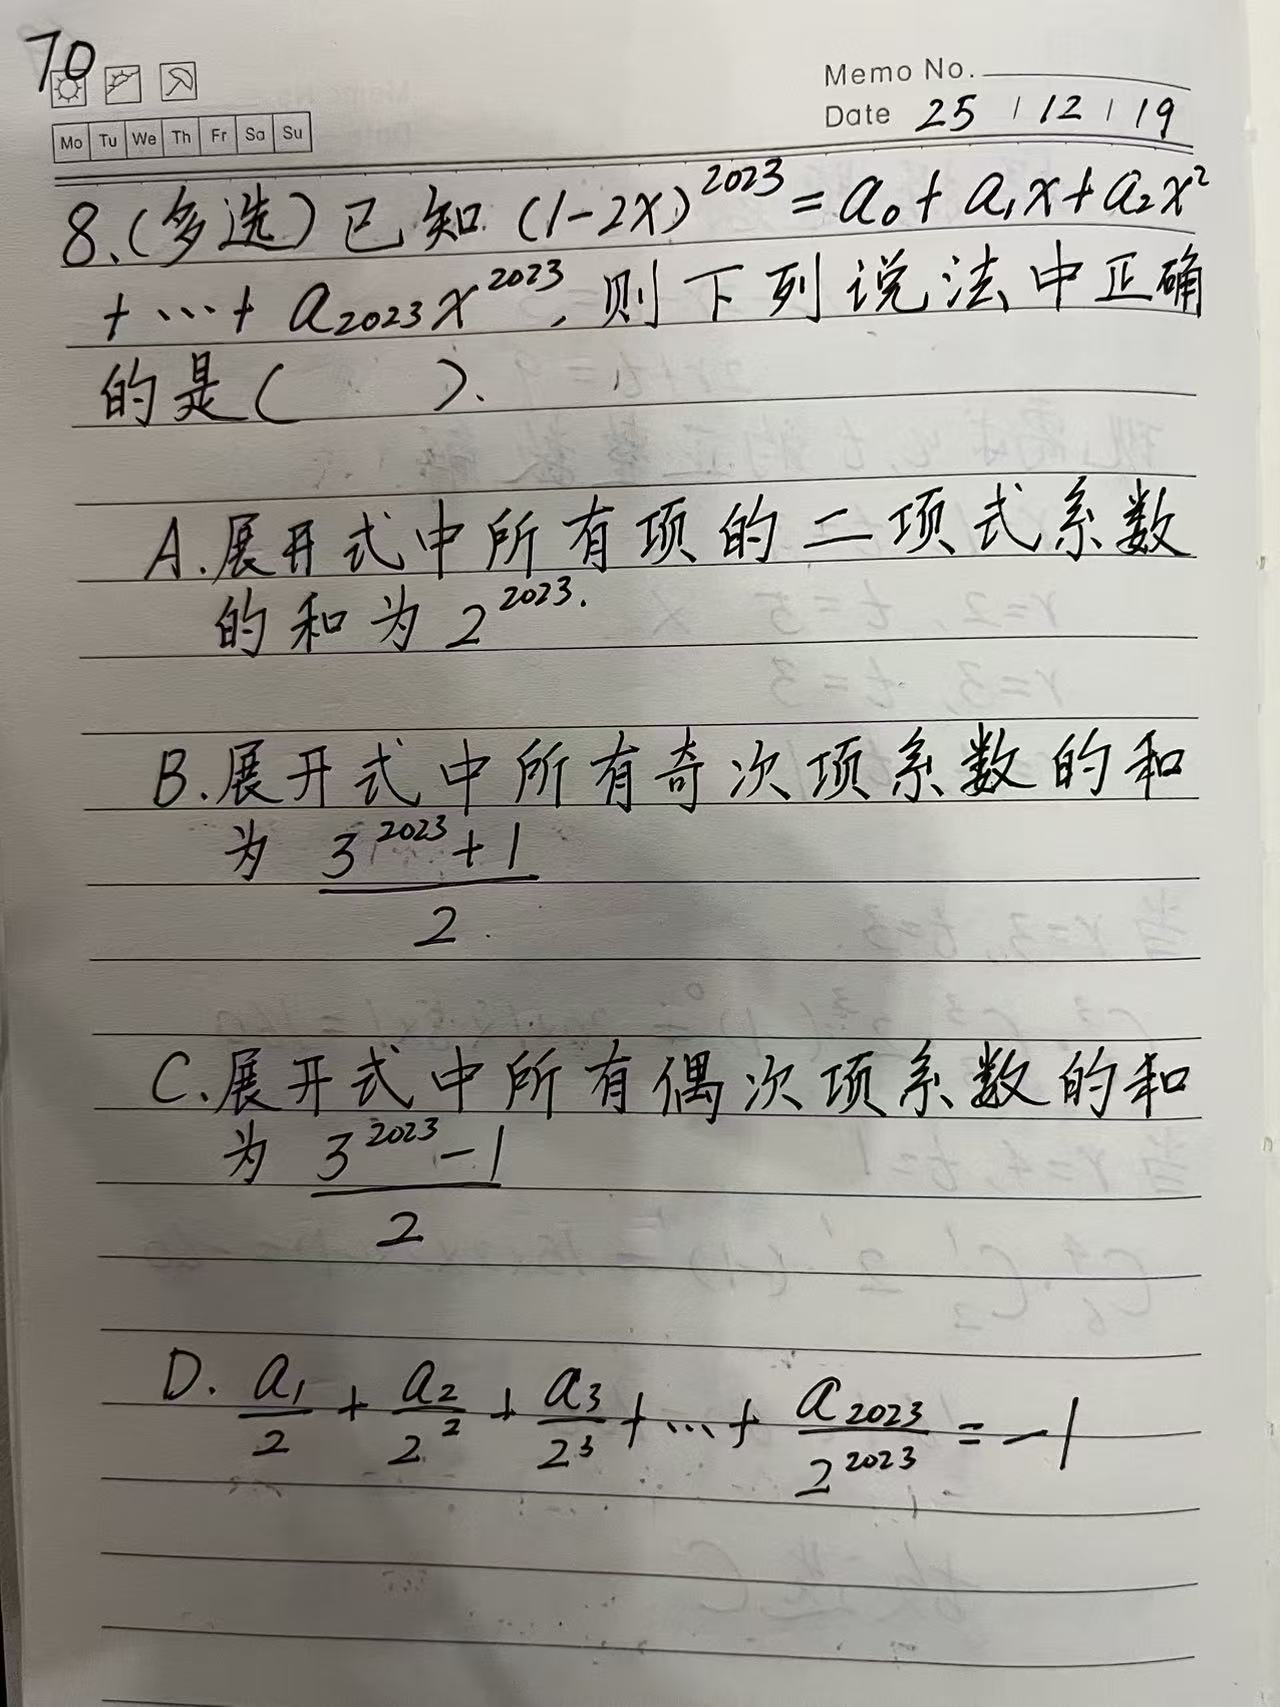 70
Memo No.
Date 25 / 12 / 19
Mo Tu We Th Fr Sa Su
8.(多选)已知 (1-2x)^2023 = a₀ + a₁x + a₂x²
+ … + a₂₀₂₃x^2023, 则下列说法中正确
的是( ).
A.展开式中所有项的二项式系数
的和为 2^2023.
B.展开式中所有奇次项系数的和
为 (3^2023 + 1)/2.
C.展开式中所有偶次项系数的和
为 (3^2023 - 1)/2
D. a₁/2 + a₂/2² + a₃/2³ + … + a₂₀₂₃/2^2023 = -1